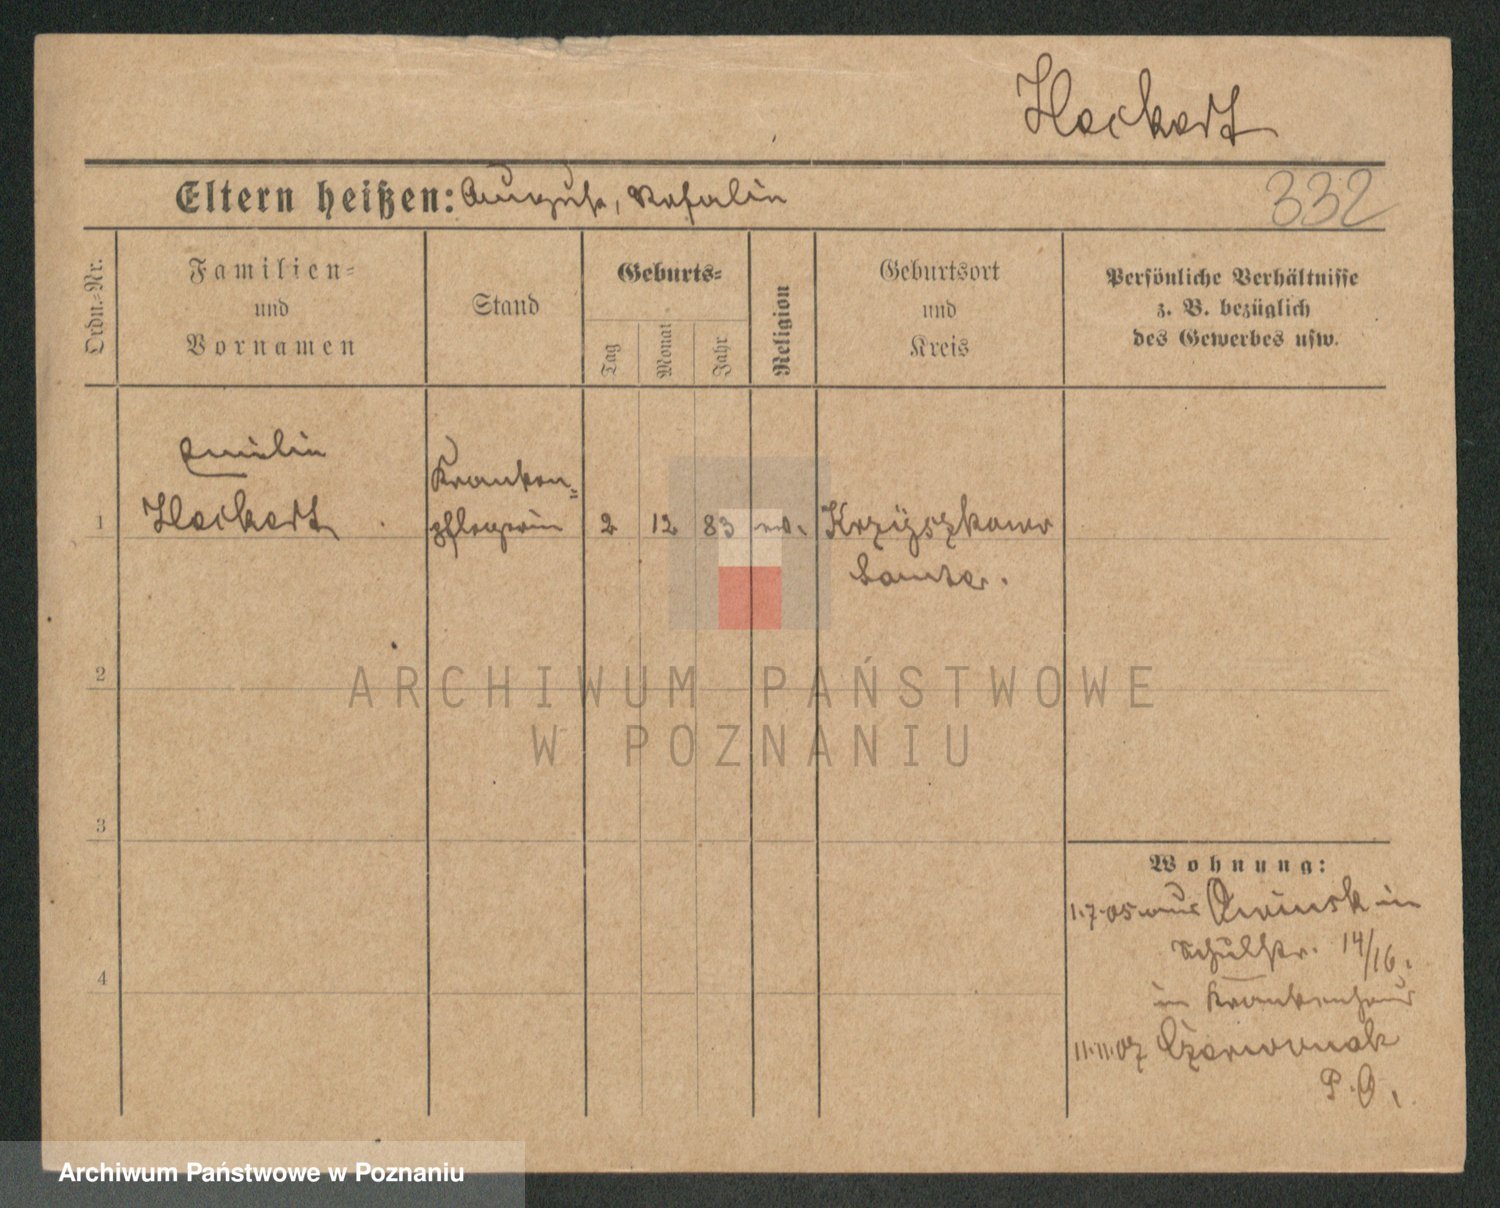 Hockert
Eltern heißen: August, Rosalie
332
Ordn.=Nr.
Familien=
und
Vornamen
Stand
Geburts=
Tag
Monat
Jahr
Religion
Geburtsort
und
Kreis
Persönliche Verhältnisse
z. B. bezüglich
des Gewerbes usw.
Emilie
Kranken=
1 Hockert pflegerin 2 12 83 ev. Krzyszkowo
Samter.
2
ARCHIWUM PAŃSTWOWE
W POZNANIU
3
Wohnung:
1.7.05 aus in
Schulstr. 14/16.
4
im Krankenhaus
11.11.07 Czerwonak
P. O.
Archiwum Państwowe w Poznaniu